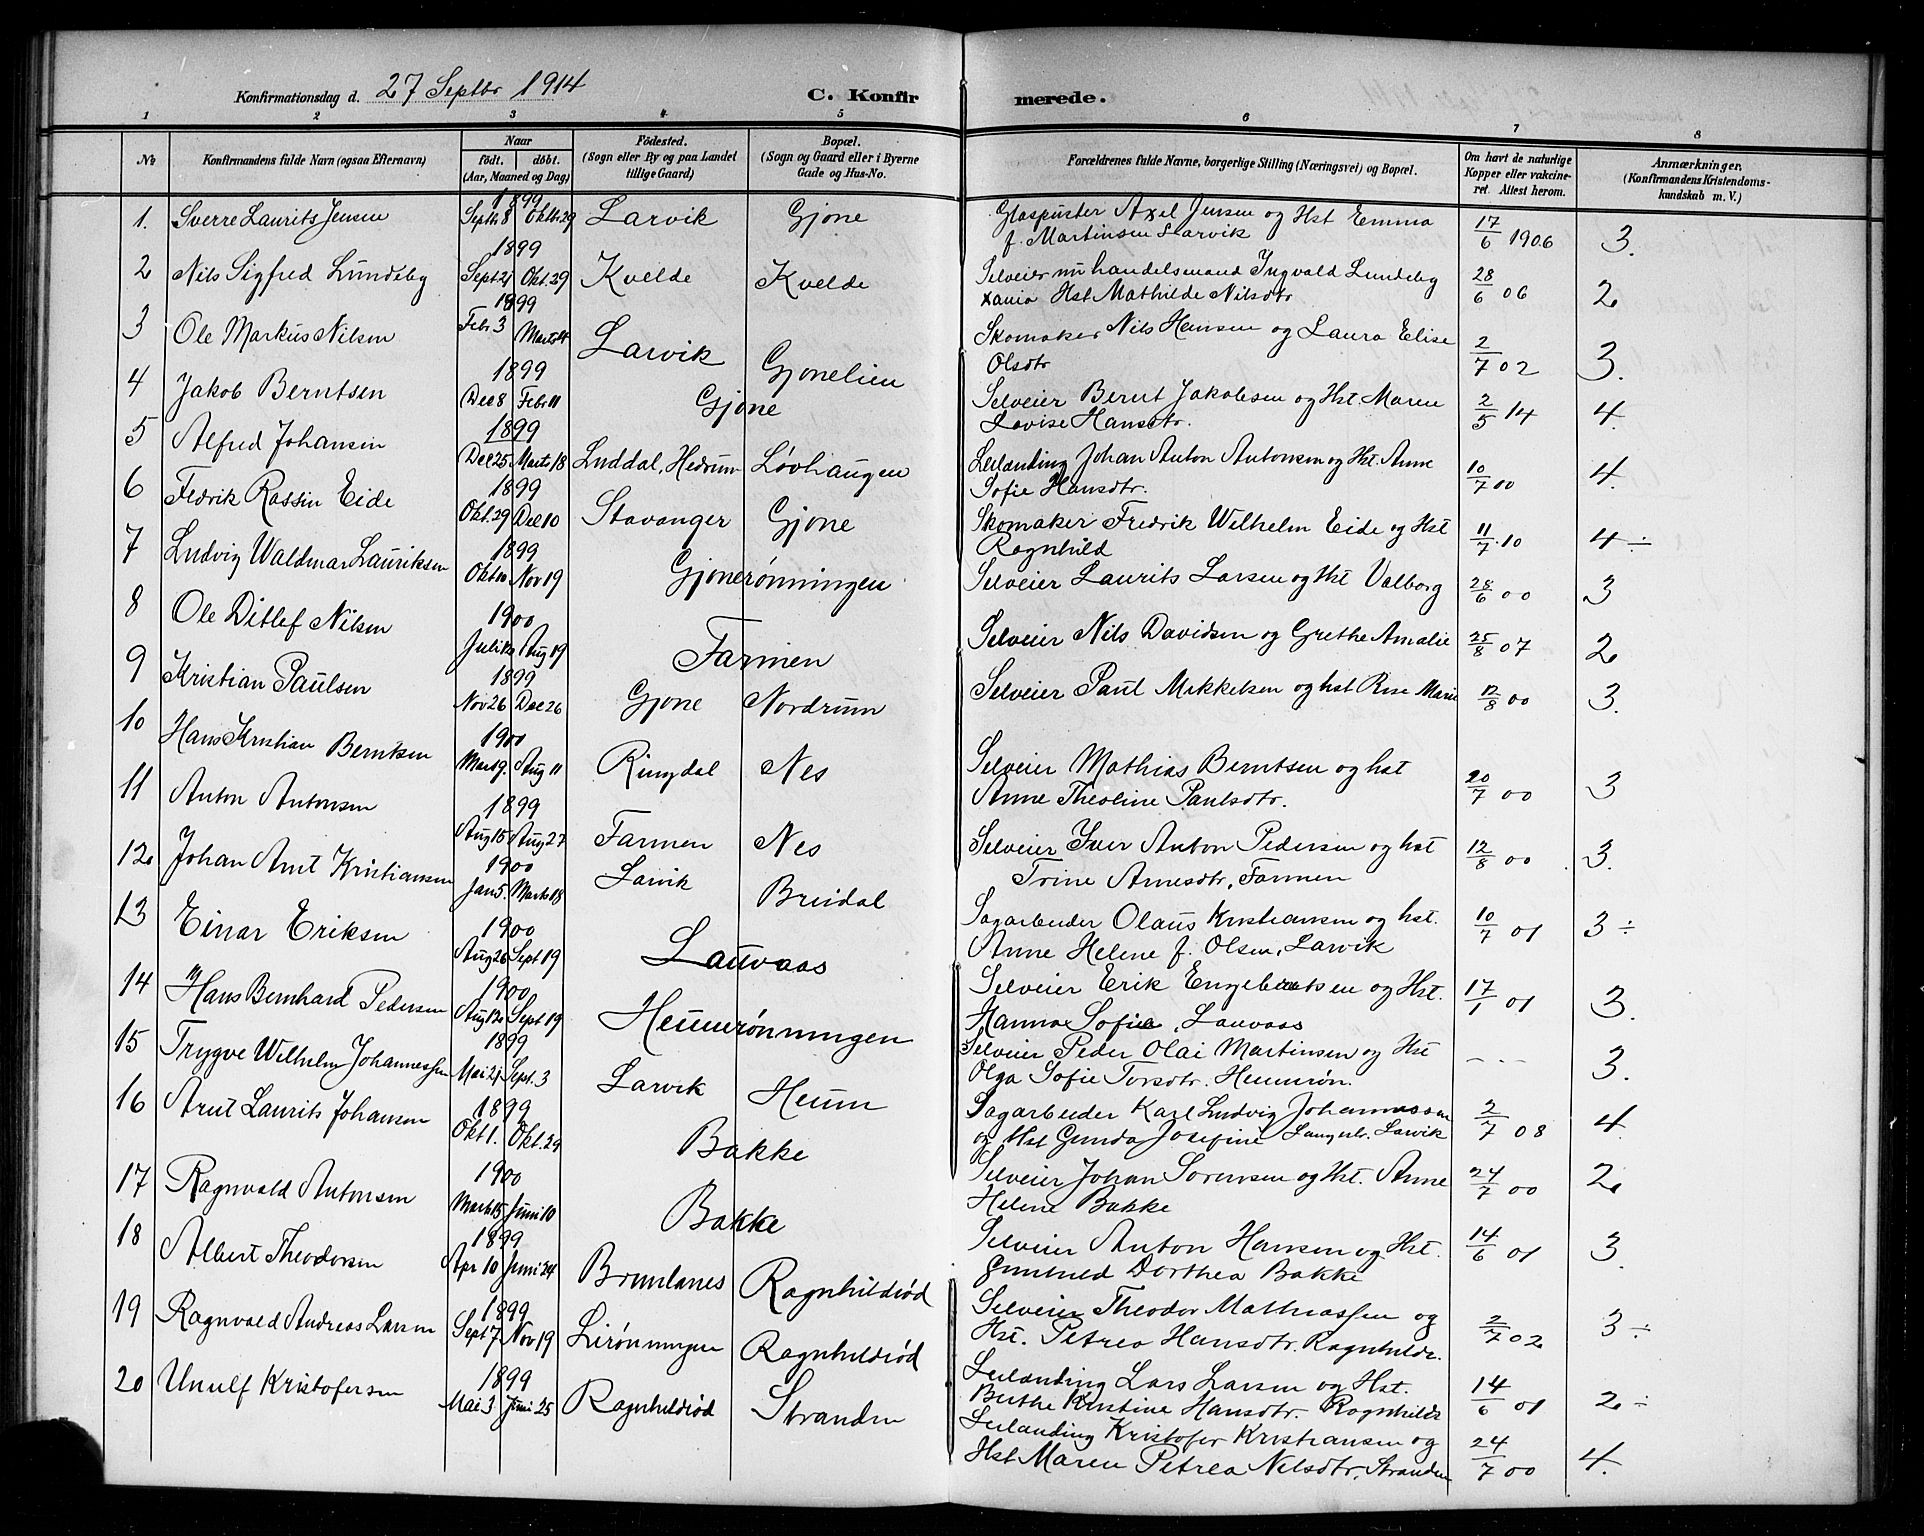 Konfirmationsdag d. 27 Septbr 1914
C. Konfirmerede.
1 2 3 4 5 6 7 8
No
Konfirmandens fulde Navn (ogsaa Efternavn)
Naar
født. døbt.
(Aar, Maaned og Dag)
Fødested.
(Sogn eller By og paa Landet tillige Gaard)
Bopæl.
(Sogn og Gaard eller i Byerne Gade og Hus-No.
Forældrenes fulde Navne, borgerlige Stilling (Næringsvei) og Bopæl.
Om havt de naturlige Kopper eller vakcineret. Attest herom.
Anmærkninger.
(Konfirmandens Kristendomskundskab m. V.)
1. Sverre Laurits Jensen 1899 Septb 8 Oktb 29 Larvik Gjone Glaspuster Axel Jensen og Hst Emma
f. Martinsen Larvik 17/6 1906 3.
2 Nils Sigfred Lundeby 1899 Sept 21 Okt. 29 Kvelde Kvelde Selveier nu handelsmand Ingvald Lundeby
Xania Hst Mathilde Nilsdtr 28/6 06 2
3 Ole Markus Nilsen 1899 Febr 3 Larvik Gjonelien Skomaker Nils Hansen og Laura Elise
Olsdtr 2/7 02 3.
4 Jakob Berntsen 1899 Dec 8 Febr 11 Gjone Selveier Bernt Jakobsen og Hst Maren
Lovise Hansdtr. 2/5 14 4.
5 Alfred Johansen 1899 Dec 25 Marts 18 Luddal, Hedrum Løvhaugen Leilænding Johan Anton Antonsen og Hst. Anne
Sofie Hansdtr. 10/7 00 4.
6 Fredrik Rassin Eide 1899 Okt. 29 Dec 10 Stavanger Gjone Skomaker Fredrik Wilhelm Eide og Hst
Ragnhild 11/7 10 4 ÷
7 Ludvig Waldmar Lauritsen 1899 Nov 19 Gjonerønningen Selveier Laurits Larsen og Hst Valborg 28/6 00 3
8 Ole Ditlef Nilsen 1900 Aug 19 Farmen Selveier Nils Davidsen og Grethe Amalie 25/8 07 2
9 Kristian Paulsen 1899 Nov 26 Dec 26 Gjone Nordrum Selveier Paul Mikkelsen og hst Rise Marie 12/8 00 3.
10 Hans Kristian Berntsen 1900 Mart 9. Aug 11 Ringdal Nes Selveier Mathias Berntsen og hst
Anne Theoline Paulsdtr. 20/7 00 3
11 Anton Antonsen 1899 Aug 15 Aug 27 Farmen Nes Selveier Iver Anton Pedersen og hst
Trine Arnesdtr, Farmen 12/8 00 3.
12 Johan Arnt Kristiansen 1900 Jan 5. Marts 18 Larvik Breidal Sagarbeider Olaus Kristiansen og hst.
Anne Helene f. Olsen, Larvik 10/7 01 3 ÷
13 Einar Eriksen 1900 Aug 26 Sept 19 Lauvaas Selveier Erik Engebretsen og Hst.
Hanna Sofie, Lauvaas 17/1 01 3.
14 Hans Bernhard Pedersen 1900 Aug 12 Sept 19 Heumrønningen Selveier Peder Olai Martinsen og Hst
Olga Sofie Torsdtr. Heumrøn. - - - 3.
15 Trygve Wilhelm Johannessen 1899 Mai 21 Sept. 3 Larvik Heum Sagarbeider Karl Ludvig Johannessen
og Hst Gunda Josefine Langestr. Larvik 2/7 08 4.
16 Arnt Laurits Johansen 1899 Okt 1. Okt. 29 Bakke Selveier Johan Sørensen og Hst. Anne
Helene Bakke 24/7 00 2
17 Ragnvald Antonsen 1900 Marts 15 Juni 10 Bakke Selveier Anton Hansen og Hst.
Gunhild Dorthea Bakke 14/6 01 3.
18 Albert Theodorsen 1899 Apr 10 Juni 24 Brunlanes Ragnhildrød Selveier Theodor Mathiassen og
Hst. Petrea Hansdtr. Ragnhildr. 2/7 02 3 ÷
19 Ragnvald Andreas Larsen 1899 Sept 7 Nov 19 Lirønningen Ragnhildrød Leilænding Lars Larsen og Hst.
Berthe Kristine Hansdtr. Ragnhildr 14/6 01 2 ÷
20 Unulf Kristofersen 1899 Mai 3 Juni 25 Ragnhildrød Stranden Leilænding Kristofer Kristiansen og
Hst Maren Petrea Nilsdtr. Stranden 24/7 00 4.